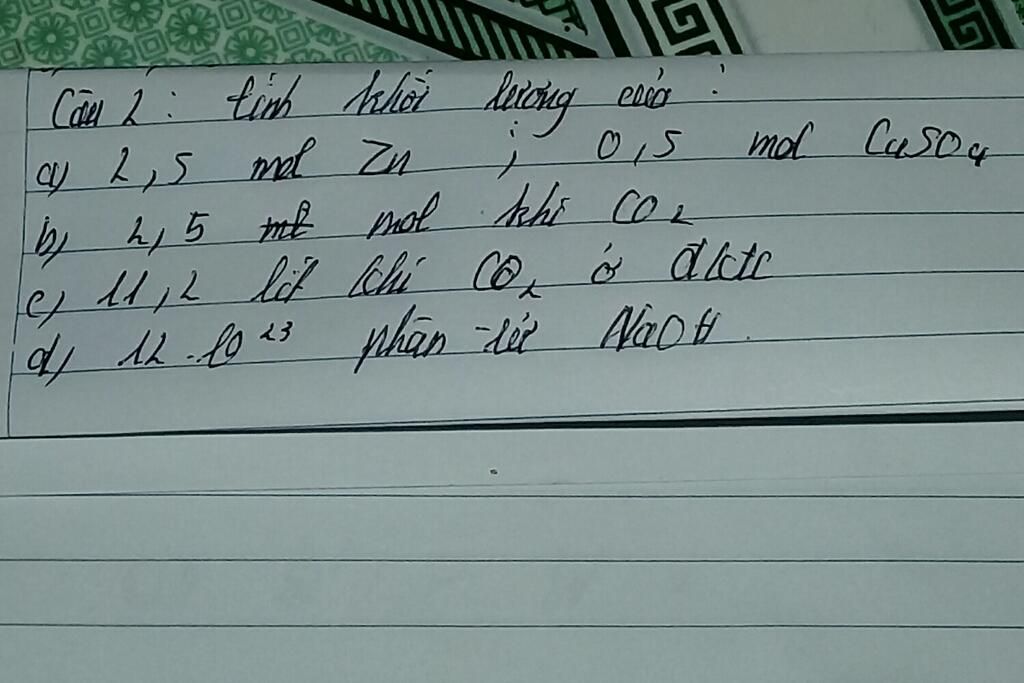 Câu 2: tính khối lượng của:
a) 2,5 mol Zn ; 0,5 mol CuSO4
b) 2,5 mol khí CO2
c) 11,2 lít khí CO2 ở đktc
d) 12.10²³ phân tử NaOH.